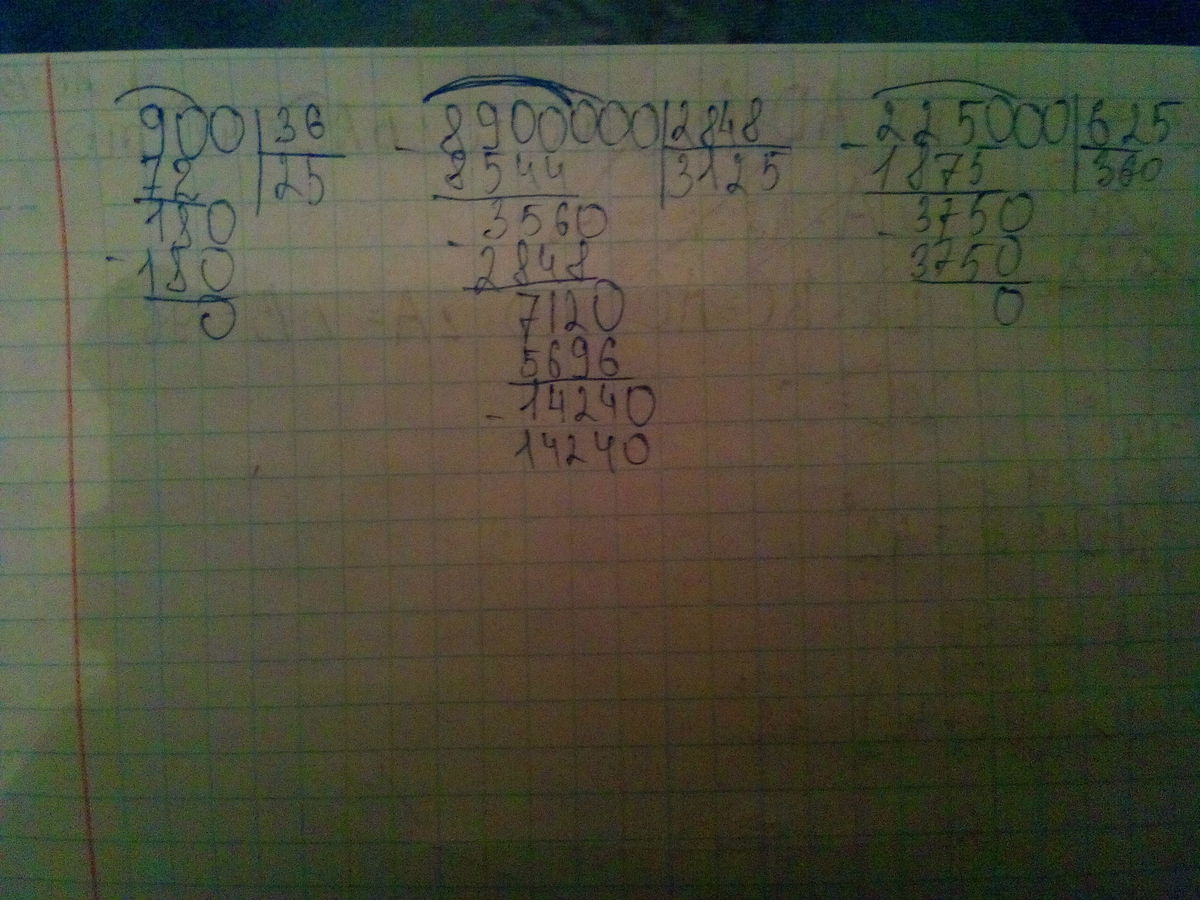 900 | 36
72 | 25
180
- 180
0
- 8900000 | 2848
8544 | 3125
3560
- 2848
7120
5696
- 14240
14240
- 225000 | 625
1875 | 360
- 3750
3750
0